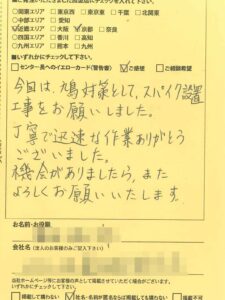 □関東エリア □東京西 □東京東 □千葉 □北関東
□中部エリア □愛知
☑近畿エリア □大阪 ☑京都 □奈良
□四国エリア □香川 □高知
□九州エリア □福岡 □九州 □熊本
■いずれかにチェックして下さい。
□センター長へのイエローカード(警告書) ☑ご感想 □ご相談希望
今回は、鳩対策として、スパイク設置
工事をお願いしました。
丁寧で迅速な作業ありがとう
ございました。
機会がありましたら、また
よろしくお願いいたします。
お名前・お役職
会社名(法人のお客様のみご記入下さい)
当社ホームページ等にお客様の声として掲載させていただく場合がございます。
いずれかにチェックして下さい。
□掲載して構わない ☑社名・名前が匿名ならば掲載しても構わない □掲載不可